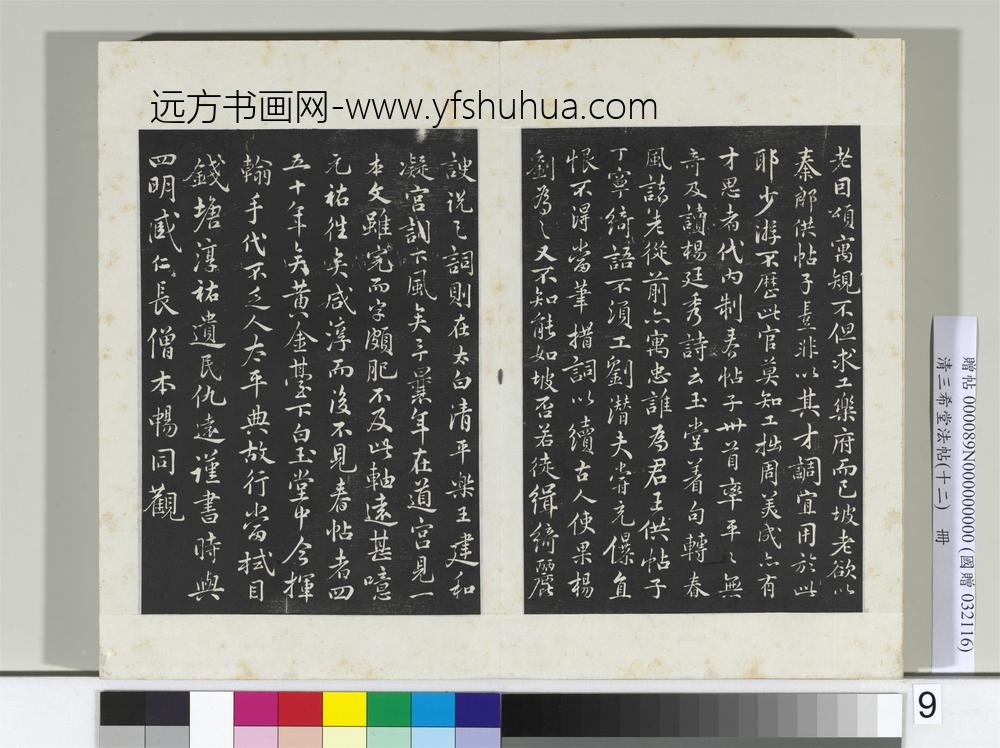 远方书画网-www.yfshuhua.com
老因頌寓規不但求工樂府而已坡老欲以
秦郎供帖子豈非以其才調宜用於此
耶少游不歷此官莫知工拙周美成亦有
才思者代内制春帖子卅首率平〻無
奇及讀楊廷秀詩云玉堂着句轉春
風諸老從前亦寓忠誰為君王供帖子
丁寧綺語不須工劉潛夫嘗充儤直
恨不得當筆措詞以續古人使果楊
劉為之又不知能如坡否若徒緝綺麗
諛說之詞則在太白清平樂王建和
凝宮詞下風矣予曩年在道宮見一
本文雖完而字頗肥不及此軸遠甚噫
元祐徃矣咸淳而後不見春帖者四
五十年矣黃金臺下白玉堂中今揮
翰手代不乏人太平典故行當拭目
錢塘淳祐遺民仇遠謹書時與
四明戚仁長僧本暢同觀
贈帖 000089N000000000 (國贈 032116)
清三希堂法帖(十二) 冊
9